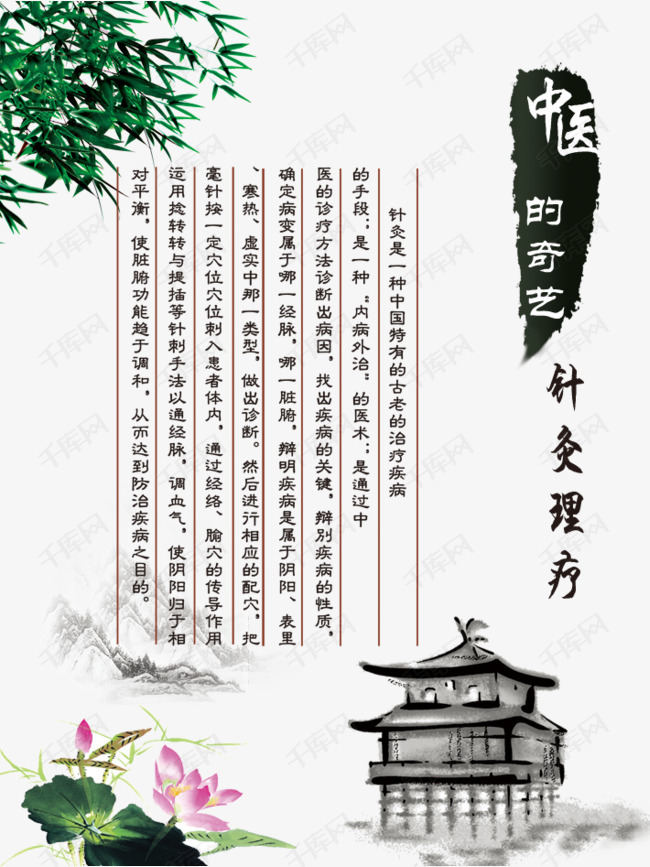 中医
的奇艺
针灸理疗
针灸是一种中国特有的古老的治疗疾病
的手段；是一种“内病外治”的医术；是通过中
医的诊疗方法诊断出病因，找出疾病的关键，辩别疾病的性质，
确定病变属于哪一经脉，哪一脏腑，辩明疾病是属于阴阳、表里
、寒热、虚实中那一类型，做出诊断。然后进行相应的配穴，把
毫针按一定穴位穴位刺入患者体内，通过经络、腧穴的传导作用
运用捻转转与提插等针刺手法以通经脉，调血气，使阴阳归于相
对平衡，使脏腑功能趋于调和，从而达到防治疾病之目的。
千库网